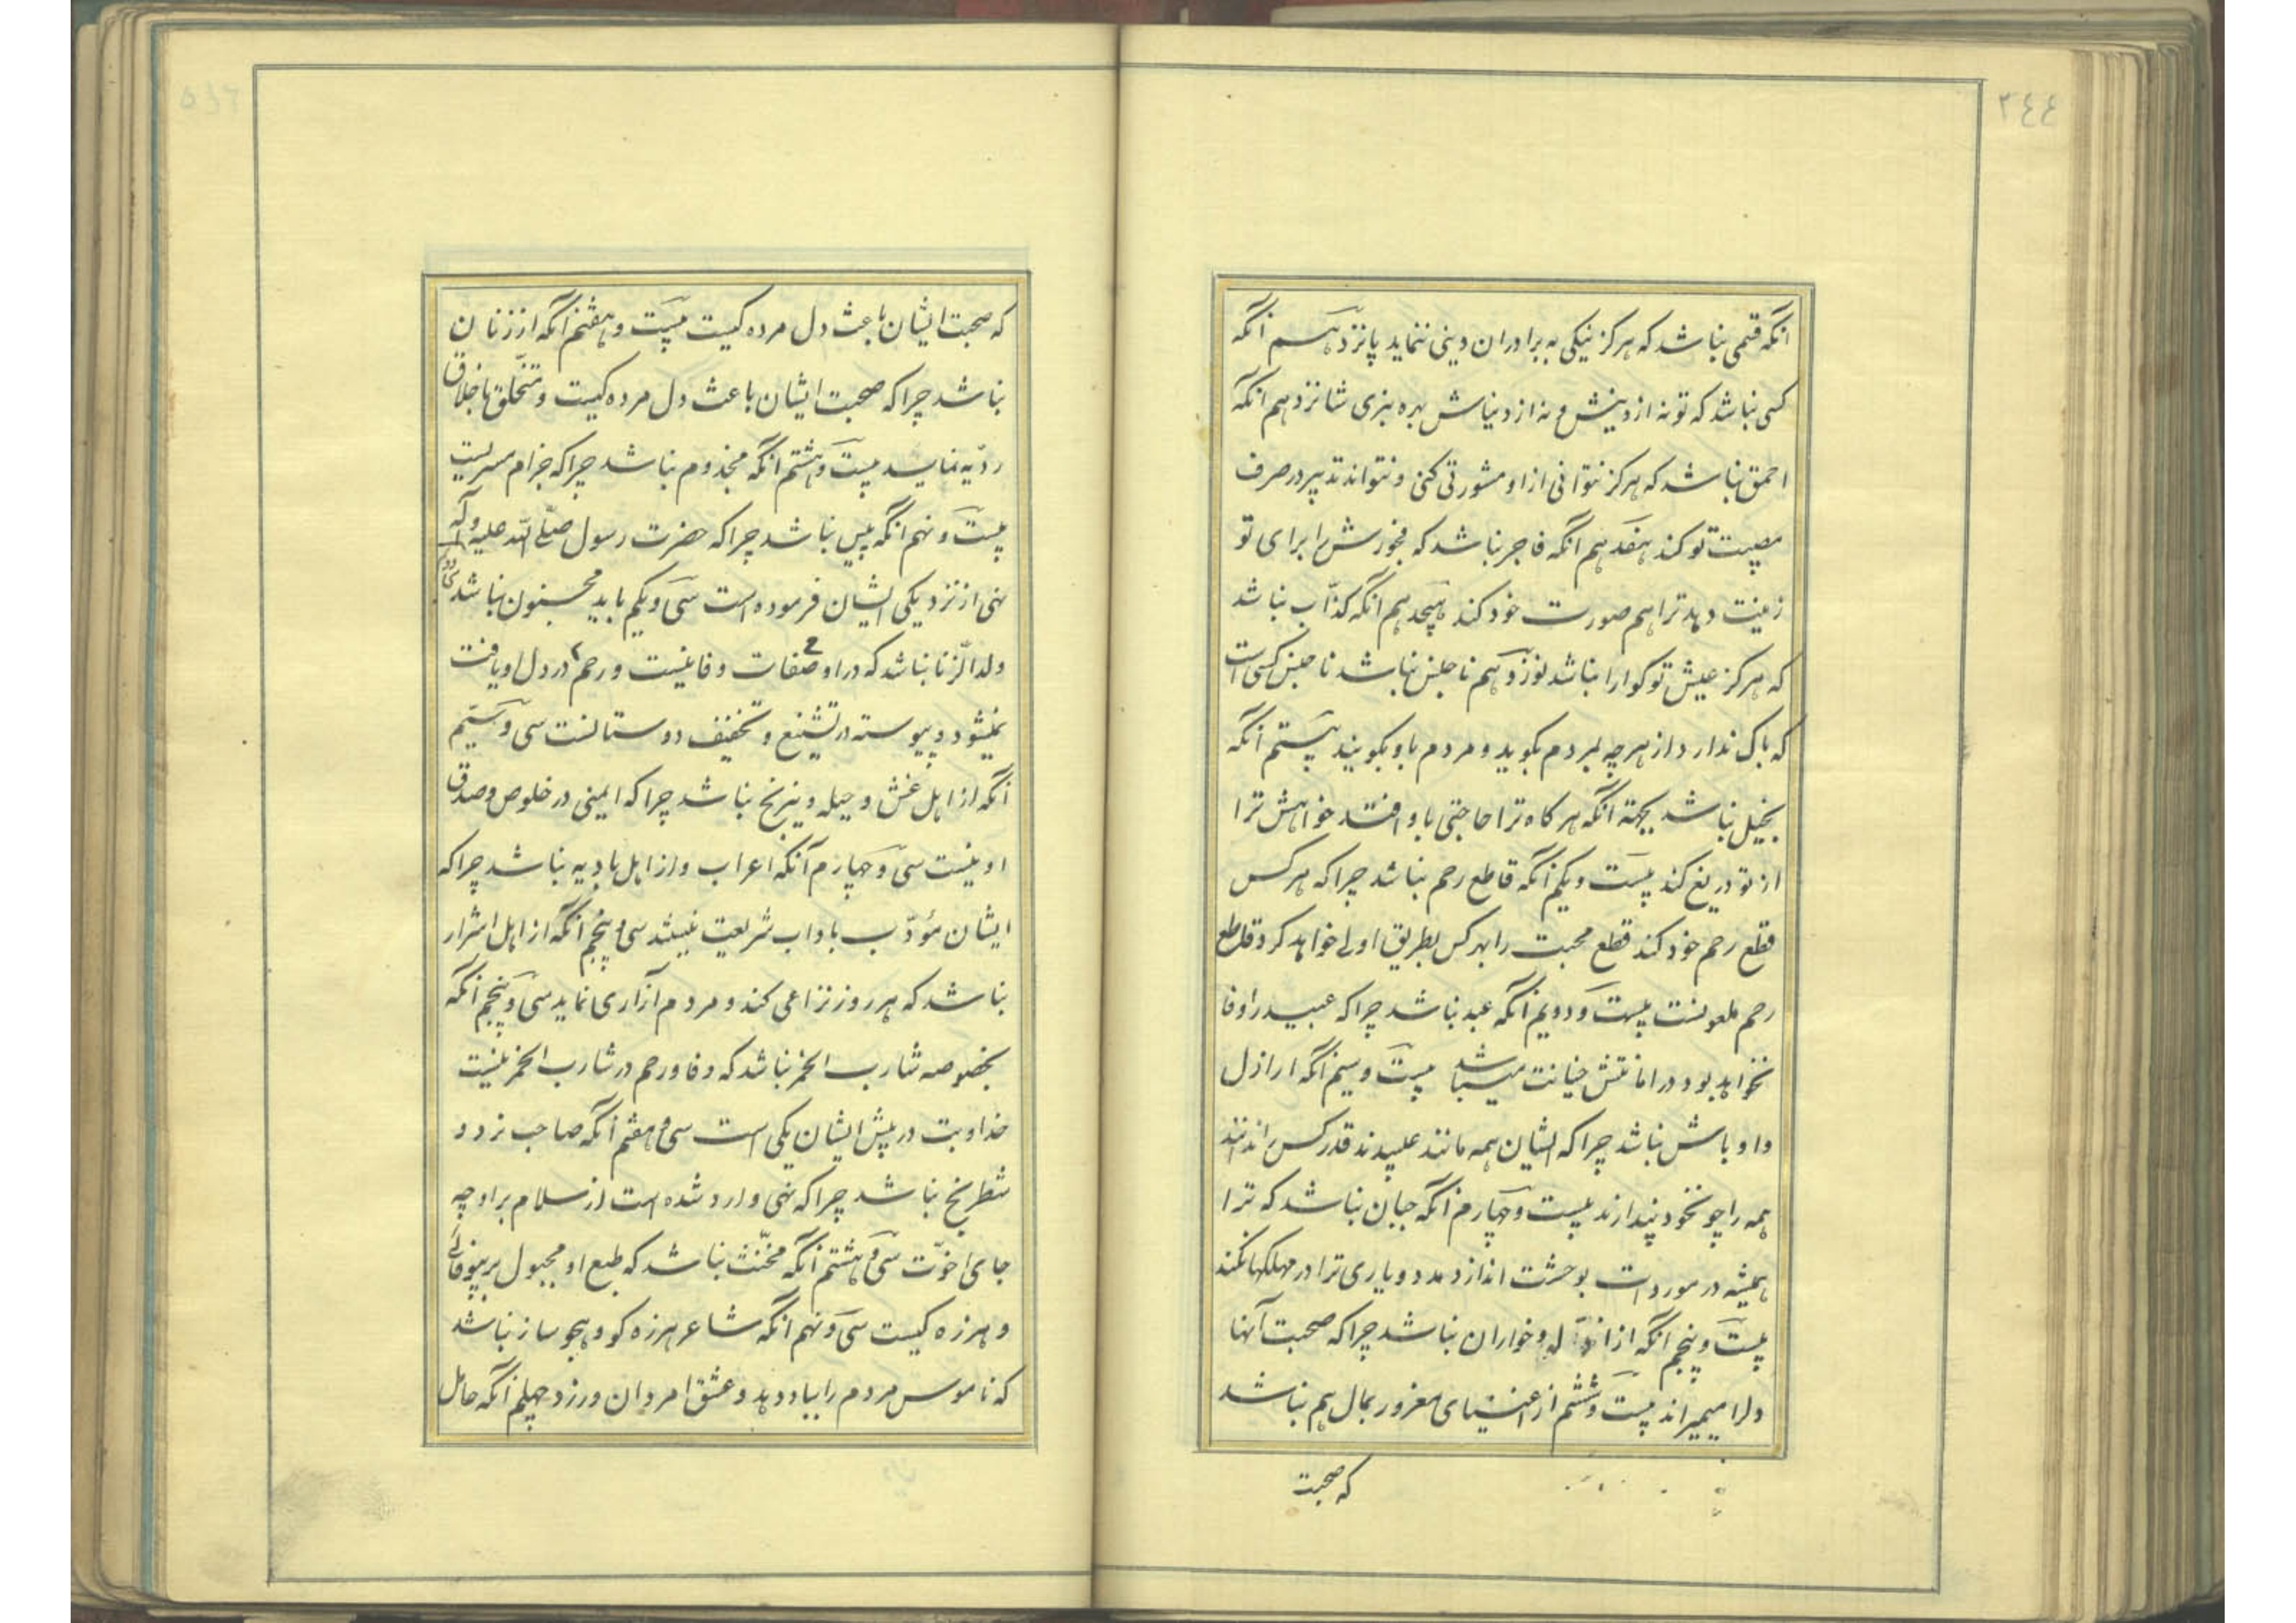 ٢٤٤
انکه قتمی نباشد که هرکز نیکی به برادران دینی ننماید پانزدهم انکه
کسی نباشد که تو نه از دینش و نه از دنیاش بهره نبری شانزدهم انکه
احمق نباشد که هرکز نتوانی از او مشورتی کنی و نتواند تدبیر در صرف
مصیبت تو کند هفدهم انکه فاجر نباشد که فجورش را برای تو
زینت دهد ترا هم صورت خود کند هیجدهم انکه کذّاب نباشد
که هرکز عیش تو کوارا نباشد نوزدهم ناجنس نباشد ناجنس کسی است
که باک ندارد از هرچه بمردم بکوید و مردم باو بکویند بیستم انکه
بخیل نباشد بجهة انکه هرکاه ترا حاجتی باو افتد خواهش ترا
از تو دریغ کند بیست و یکم انکه قاطع رحم نباشد چراکه هرکس
قطع رحم خود کند قطع محبت را بهرکس بطریق اولی خواهد کرد و قاطع
رحم ملعونست بیست و دویم انکه عبد نباشد چراکه عبید را وفا
نخواهد بود در امانتش خیانت میباشد بیست و سیم انکه اراذل
و اوباش نباشد چراکه ایشان همه مانند قدر کس ندانند
همه را چو خود پندارند بیست و چهارم انکه جبان نباشد که ترا
همیشه در مورد است بوحشت اندازد مدد و یاری ترا در مهلکها نکند
بیست و پنجم انکه از و خواران نباشد چراکه صحبت آنها
دلرا میمیراند بیست و ششم از اغنیای مغرور بمال هم نباشد
که صحبت
که صحبت ایشان باعث دل مرده کیست بیست و هفتم انکه از زنان
نباشد چراکه صحبت ایشان باعث دل مرده کیست و متخلق باخلاق
ردیّه نماید بیست و هشتم انکه مجذوم نباشد چراکه جزام مسریست
بیست و نهم انکه پیس نباشد چراکه حضرت رسول صلّی الله علیه و آله
نهی از نزدیکی ایشان فرموده است سی و یکم باید مجنون نباشد
ولد الزنا نباشد که در او صفات وفا نیست و رحم در دل او یافت
نمیشود و پیوسته در تشنیع و تخفیف دوستانست سی و سیّم
انکه از اهل غش و حیله و نیرنج نباشد چراکه ایمنی در خلوص و صدق
او نیست سی و چهارم آنکه اعراب و از اهل بادیه نباشد چراکه
ایشان مؤدّب باداب شریعت نیستند سی و پنجم انکه از اهل اشرار
نباشد که هر روز نزاعی کند و مردم آزاری نماید سی و پنجم انکه
بخصوصه شارب الخمر نباشد که وفا و رحم در شارب الخمر نیست
خدا و بت در پیش ایشان یکی است سی و هفتم انکه صاحب نرد و
شطرنج نباشد چراکه نهی وارد شده است از سلام بر او چه
جای اخوّت سی و هشتم انکه مخنّث نباشد که طبع او مجبول بر بیوفائی
و هرزه کیست سی و نهم انکه شاعر هرزه کو و هجو ساز نباشد
که ناموس مردم را بباد دهد و عشق امردان ورزد چهلم انکه حامل